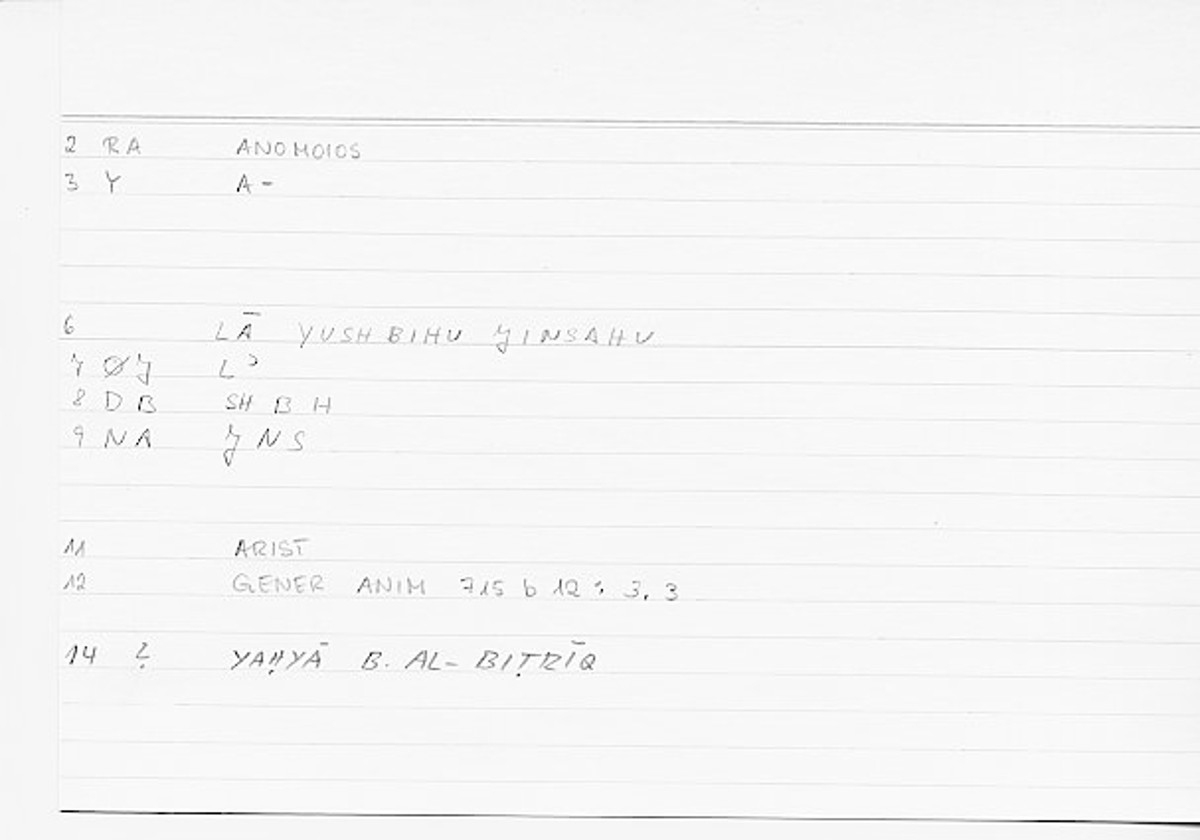 2 RA ANOMOIOS
3 Y A-
6 LĀ YUSHBIHU JINSAHU
7 ØJ Lʾ
8 DB SH B H
9 NA J N S
11 ARIST
12 GENER ANIM 715 b 12 : 3.3
14 ? YAḤYĀ B. AL-BIṬRĪQ